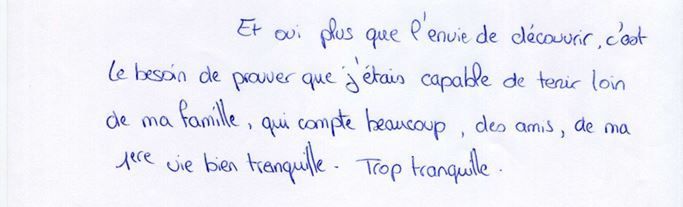 Et oui plus que l'envie de découvrir, c'est
le besoin de prouver que j'étais capable de tenir loin
de ma famille, qui compte beaucoup, des amis, de ma
1ere vie bien tranquille. Trop tranquille.